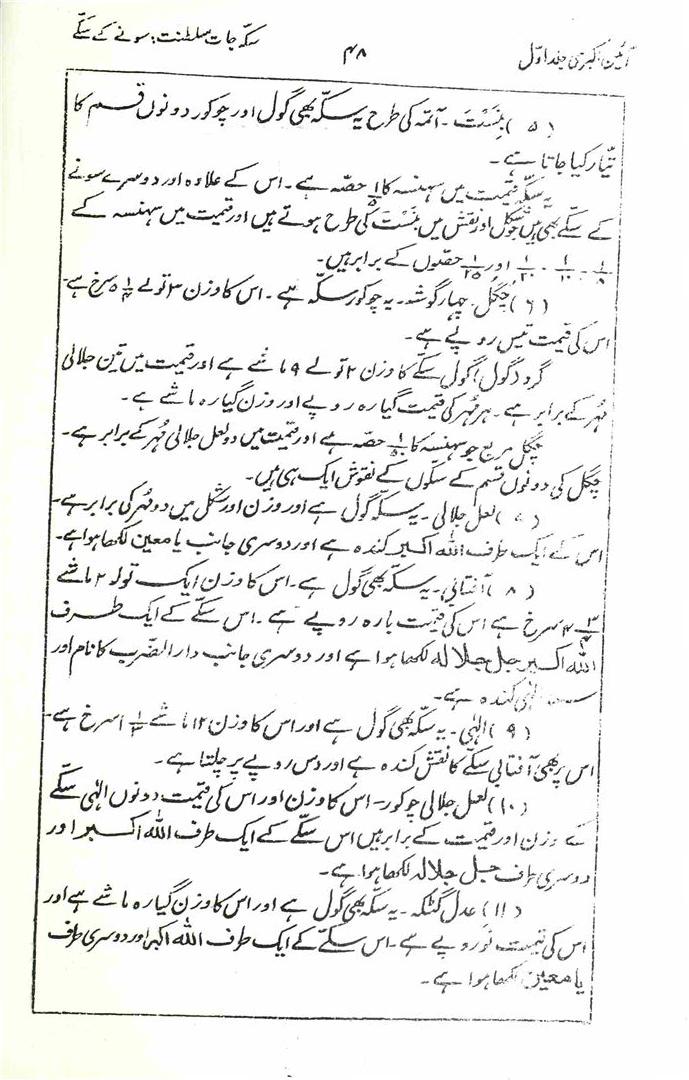 آئین اکبری جلد اوّل
۴۸
سکّہ جات سلطنت: سونے کے سکّے
(۵) بِنِسَتْ۔ آتمہ کی طرح یہ سکّہ بھی گول اور چوکور دونوں قسم کا
تیّار کیا جاتا ہے۔
یہ سکّہ قیمت میں سہنسہ کا ۱/۵ حصّہ ہے۔ اس کے علاوہ اور دوسرے سونے
کے سکّے بھی ہیں جو شکل اور نقش میں بِنِسَتْ کی طرح ہوتے ہیں اور قیمت میں سہنسہ کے
۱/۸ - ۱/۱۰ - ۱/۲۰ اور ۱/۲۵ حصّوں کے برابر ہیں۔
(۶) چگل چہار گوشہ۔ یہ چوکور سکّہ ہے۔ اس کا وزن ۳ تولے ۱/۴ ۵ سرخ ہے
اس کی قیمت تیس روپے ہے۔
گرد (گول) گول سکّے کا وزن ۲ تولے ۹ ماشے ہے اور قیمت میں تین جلالی
مُہر کے برابر ہے۔ ہر مُہر کی قیمت گیارہ روپے اور وزن گیارہ ماشے ہے۔
چگل مربع جو سہنسہ کا ۱/۵۰ حصّہ ہے اور قیمت میں دو لعل جلالی مُہر کے برابر ہے۔
چگل کی دونوں قسم کے سکوں کے نقوش ایک ہی ہیں۔
(۷) لعل جلالی۔ یہ سکّہ گول ہے اور وزن اور شکل میں دو مُہر کی برابر ہے۔
اس کے ایک طرف اللہ اکبر کندہ ہے اور دوسری جانب یا معین لکھا ہوا ہے۔
(۸) آفتابی۔ یہ سکّہ بھی گول ہے۔ اس کا وزن ایک تولہ ۲ ماشے
۳/۴ ۴ سرخ ہے اس کی قیمت بارہ روپے ہے۔ اس سکّے کے ایک طرف
اللہ اکبر جل جلالہ لکھا ہوا ہے اور دوسری جانب دارالضّرب کا نام اور
الٰہی کندہ ہے۔
(۹) الٰہی۔ یہ سکّہ بھی گول ہے اور اس کا وزن ۱۲ ماشے ۱ سرخ ہے۔
اس پر بھی آفتابی سکّے کا نقش کندہ ہے اور دس روپے پر چلتا ہے۔
(۱۰) لعل جلالی چوکور۔ اس کا وزن اور اس کی قیمت دونوں الٰہی سکّے
کے وزن اور قیمت کے برابر ہیں اس سکّے کے ایک طرف اللہ اکبر اور
دوسری طرف جل جلالہ لکھا ہوا ہے۔
(۱۱) عدل گٹکہ۔ یہ سکّہ بھی گول ہے اور اس کا وزن گیارہ ماشے ہے اور
اس کی قیمت نو روپے ہے۔ اس سکّے کے ایک طرف اللہ اکبر اور دوسری طرف
یا معین لکھا ہوا ہے۔